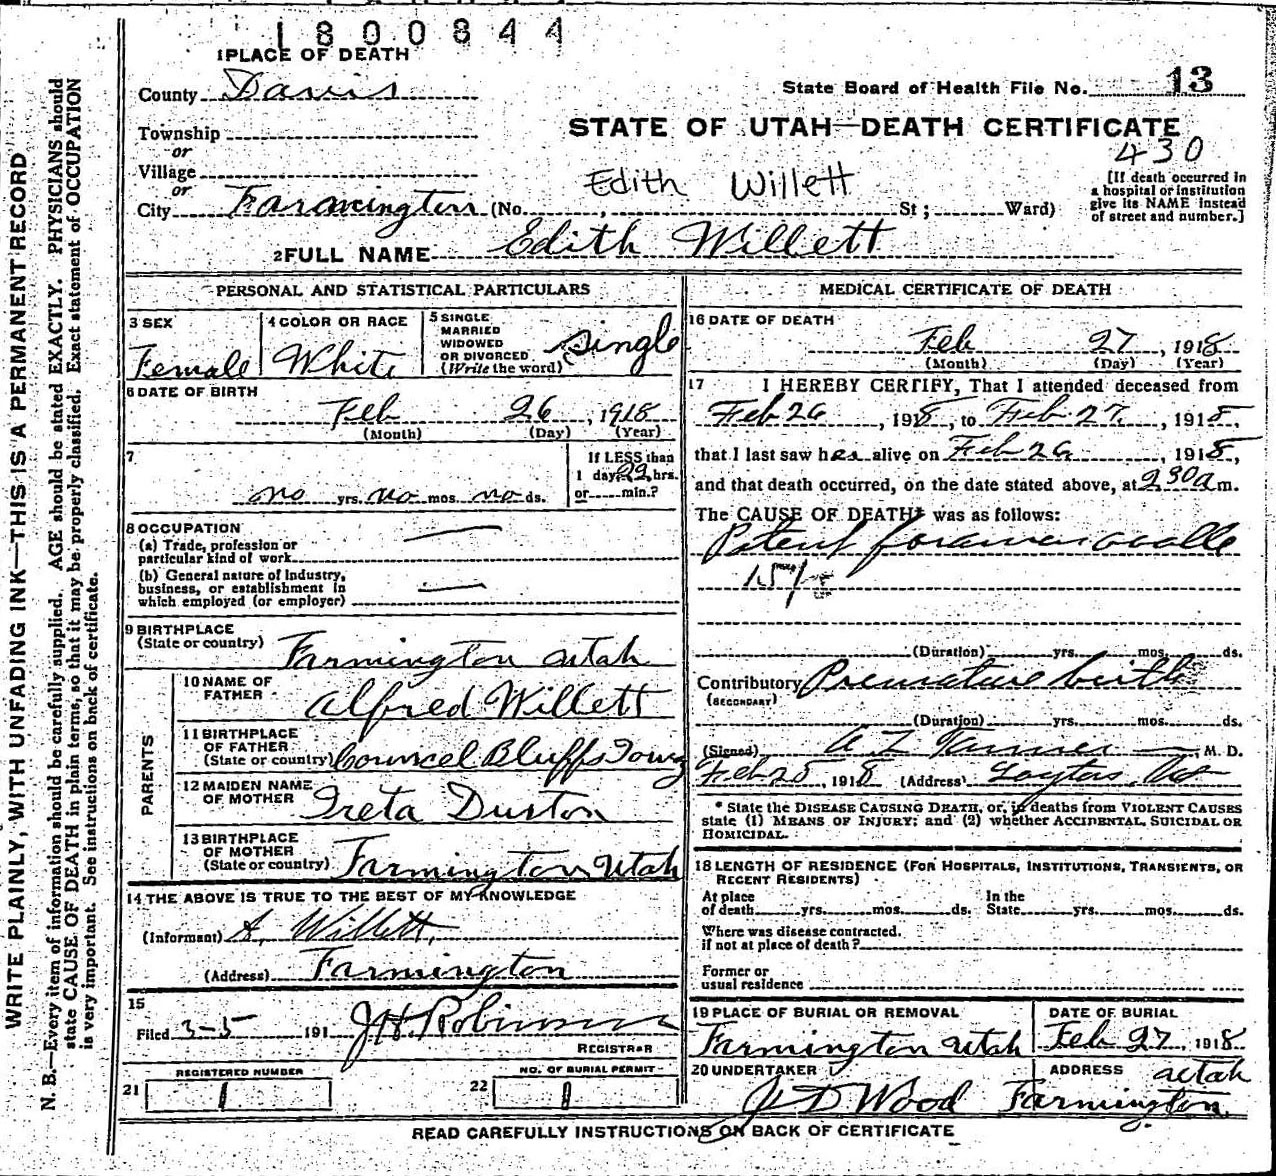 1800844
1 PLACE OF DEATH
County Davis
State Board of Health File No. 13
Township
or
Village
or
City Farmington (No. , St ; Ward)
STATE OF UTAH—DEATH CERTIFICATE
430
Edith Willett
[If death occurred in
a hospital or institution
give its NAME instead
of street and number.]
2 FULL NAME Edith Willett
PERSONAL AND STATISTICAL PARTICULARS
3 SEX
Female
4 COLOR OR RACE
White
5 SINGLE
MARRIED
WIDOWED
OR DIVORCED
(Write the word)
Single
6 DATE OF BIRTH
Feb 26, 1918
(Month) (Day) (Year)
7
no yrs. no mos. no ds.
If LESS than
1 day, 22 hrs.
or min.?
8 OCCUPATION
(a) Trade, profession or
particular kind of work
(b) General nature of Industry,
business, or establishment in
which employed (or employer)
9 BIRTHPLACE
(State or country) Farmington Utah
PARENTS
10 NAME OF
FATHER
Alfred Willett
11 BIRTHPLACE
OF FATHER
(State or country) Councel Bluffs Iowa
12 MAIDEN NAME
OF MOTHER
Greta Durton
13 BIRTHPLACE
OF MOTHER
(State or country) Farmington Utah
14 THE ABOVE IS TRUE TO THE BEST OF MY KNOWLEDGE
(Informant) A. Willett.
(Address) Farmington
15
Filed 3-5 191 J.H. Robinson
REGISTRAR
REGISTERED NUMBER
21 1
NO. OF BURIAL PERMIT
22 1
MEDICAL CERTIFICATE OF DEATH
16 DATE OF DEATH
Feb 27, 1918
(Month) (Day) (Year)
17 I HEREBY CERTIFY, That I attended deceased from
Feb 26, 1918, to Feb 27, 1918,
that I last saw her alive on Feb 26, 1918,
and that death occurred, on the date stated above, at 230 a m.
The CAUSE OF DEATH* was as follows:
Patent foramen ovalle
(Duration) yrs. mos. ds.
Contributory Premature birth
(SECONDARY)
(Duration) yrs. mos. ds.
(Signed) M. D.
Feb 28, 1918 (Address)
* State the DISEASE CAUSING DEATH, or, in deaths from VIOLENT CAUSES
state (1) MEANS OF INJURY; and (2) whether ACCIDENTAL, SUICIDAL OR
HOMICIDAL.
18 LENGTH OF RESIDENCE (FOR HOSPITALS, INSTITUTIONS, TRANSIENTS, OR
RECENT RESIDENTS)
At place
of death yrs. mos. ds.
In the
State yrs. mos. ds.
Where was disease contracted,
if not at place of death?
Former or
usual residence
19 PLACE OF BURIAL OR REMOVAL
Farmington Utah
DATE OF BURIAL
Feb 27, 1918
20 UNDERTAKER
J D Wood
ADDRESS Utah
Farmington.
READ CAREFULLY INSTRUCTIONS ON BACK OF CERTIFICATE
WRITE PLAINLY, WITH UNFADING INK—THIS IS A PERMANENT RECORD
N. B.—Every item of information should be carefully supplied. AGE should be stated EXACTLY. PHYSICIANS should
state CAUSE OF DEATH in plain terms, so that it may be properly classified. Exact statement of OCCUPATION
is very important. See instructions on back of certificate.